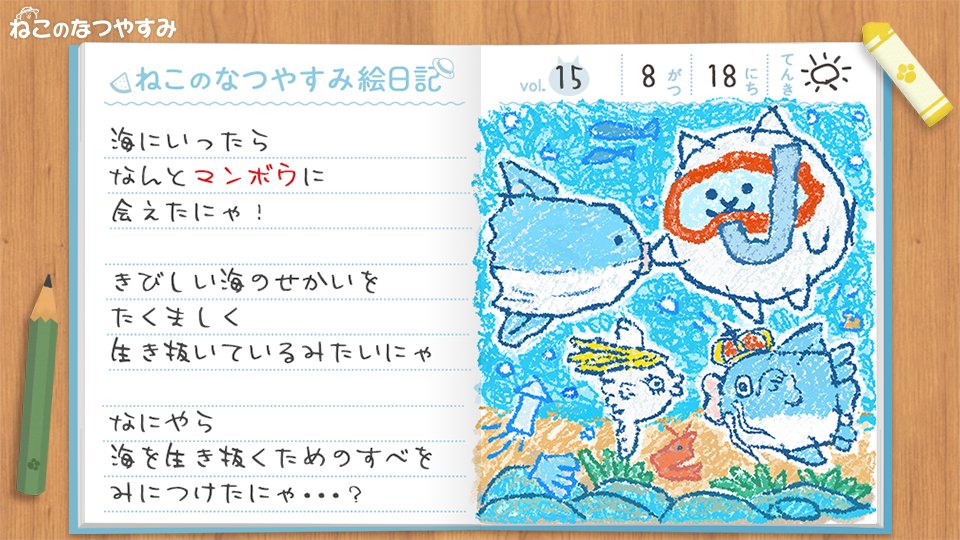 ねこのなつやすみ
ねこのなつやすみ絵日記
海にいったら
なんとマンボウに
会えたにゃ！
きびしい海のせかいを
たくましく
生き抜いているみたいにゃ
なにやら
海を生き抜くためのすべを
みにつけたにゃ・・・？
vol. 15 8がつ 18にち てんき